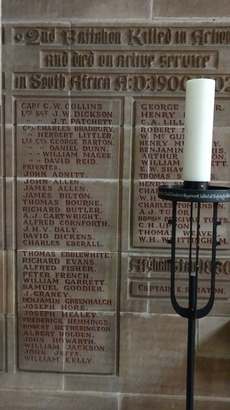 2nd Battalion Killed in Action
and died on active service
in South Africa A.D. 190
CAPT C. W. COLLINS
J. W. DICKSON.
J. T. PATCHETT
CHARLES BRADBURY.
HERBERT LITTLER.
GEORGE BARTON.
DANIEL DUNN.
WILLIAM MAGEE
DAVID REID.
PRIVATES.
JOHN ADNITT.
THOMAS ALLEN
JAMES ALLEN.
JAMES BILTON.
THOMAS BOURNE.
RICHARD BUTLER.
A. J. CARTWRIGHT.
ALFRED CORNFORTH.
J. H. V. DALY.
DAVID DICKENS.
CHARLES EBERALL.
THOMAS EBBLEWHITE.
RICHARD EVANS.
ALFRED FISHER.
PETER FRENCH.
WILLIAM GARRETT
SAMUEL GOODIER.
J. GRANEY.
BENJAMIN GREENHALGH
JOSEPH HORE.
JOSEPH HEALEY.
FREDERICK HEMMINGS.
ROBERT HETHERINGTON.
ALBERT HOLDEN.
JOHN HOWARTH.
WILLIAM JACKSON.
JOHN JEFFS.
WILLIAM KELLY.
GEORGE
HENRY
C. A. LILL
ROBERT
W. Mc GU
HENRY
BENJAMIN
ARTHUR
WILLIAM
E. W. SHAW
THOMAS
CHARLES
A. J. TU
C. H. UP
THOMAS WEAVER
W. H. W
CAPTAIN